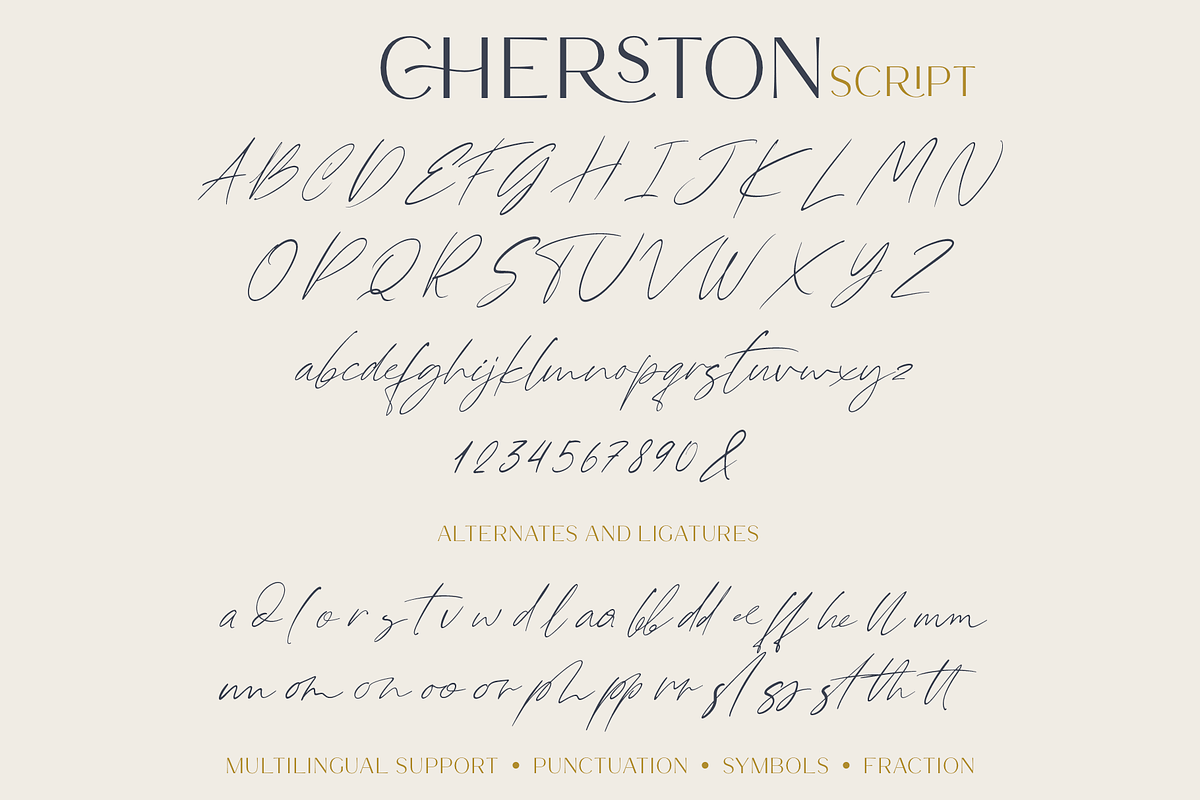 CHERSTON SCRIPT
A B C D E F G H I J K L M N
O P Q R S T U V W X Y Z
abcdefghijklmnopqrstuvwxyz
1 2 3 4 5 6 7 8 9 0 &
ALTERNATES AND LIGATURES
a d l o r s t v w d l aa bb dd ee ff he ll mm
nn om on oo or ph pp rr sl ss st th tt
MULTILINGUAL SUPPORT • PUNCTUATION • SYMBOLS • FRACTION